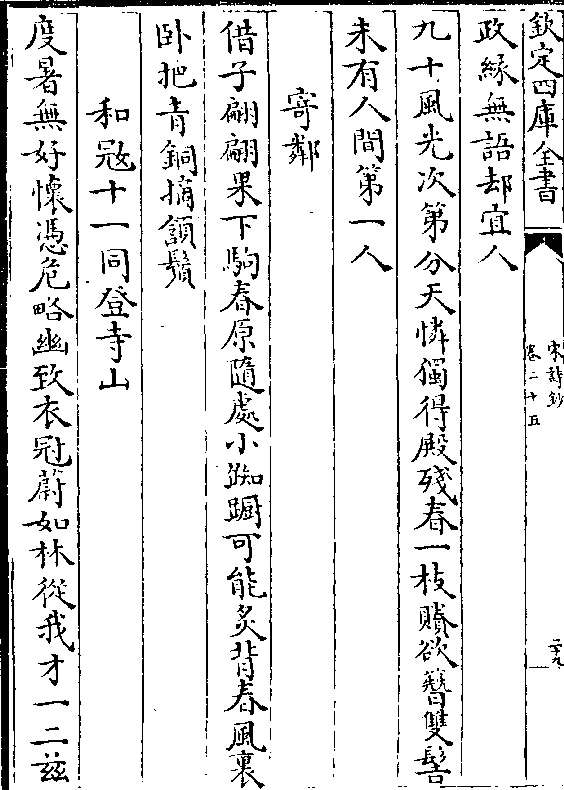 欽定四庫全書
宋詩鈔
卷二十五
二十九
政緣無語却宜人
九十風光次第分天憐獨得殿殘春一枝賸欲簪雙髻
未有人間第一人
寄鄰
借子翩翩果下駒春原隨處小踟蹰可能炙背春風裏
卧把青銅摘頷鬚
和寇十一同登寺山
度暑無好懷憑危略幽致衣冠蔚如林從我才一二兹